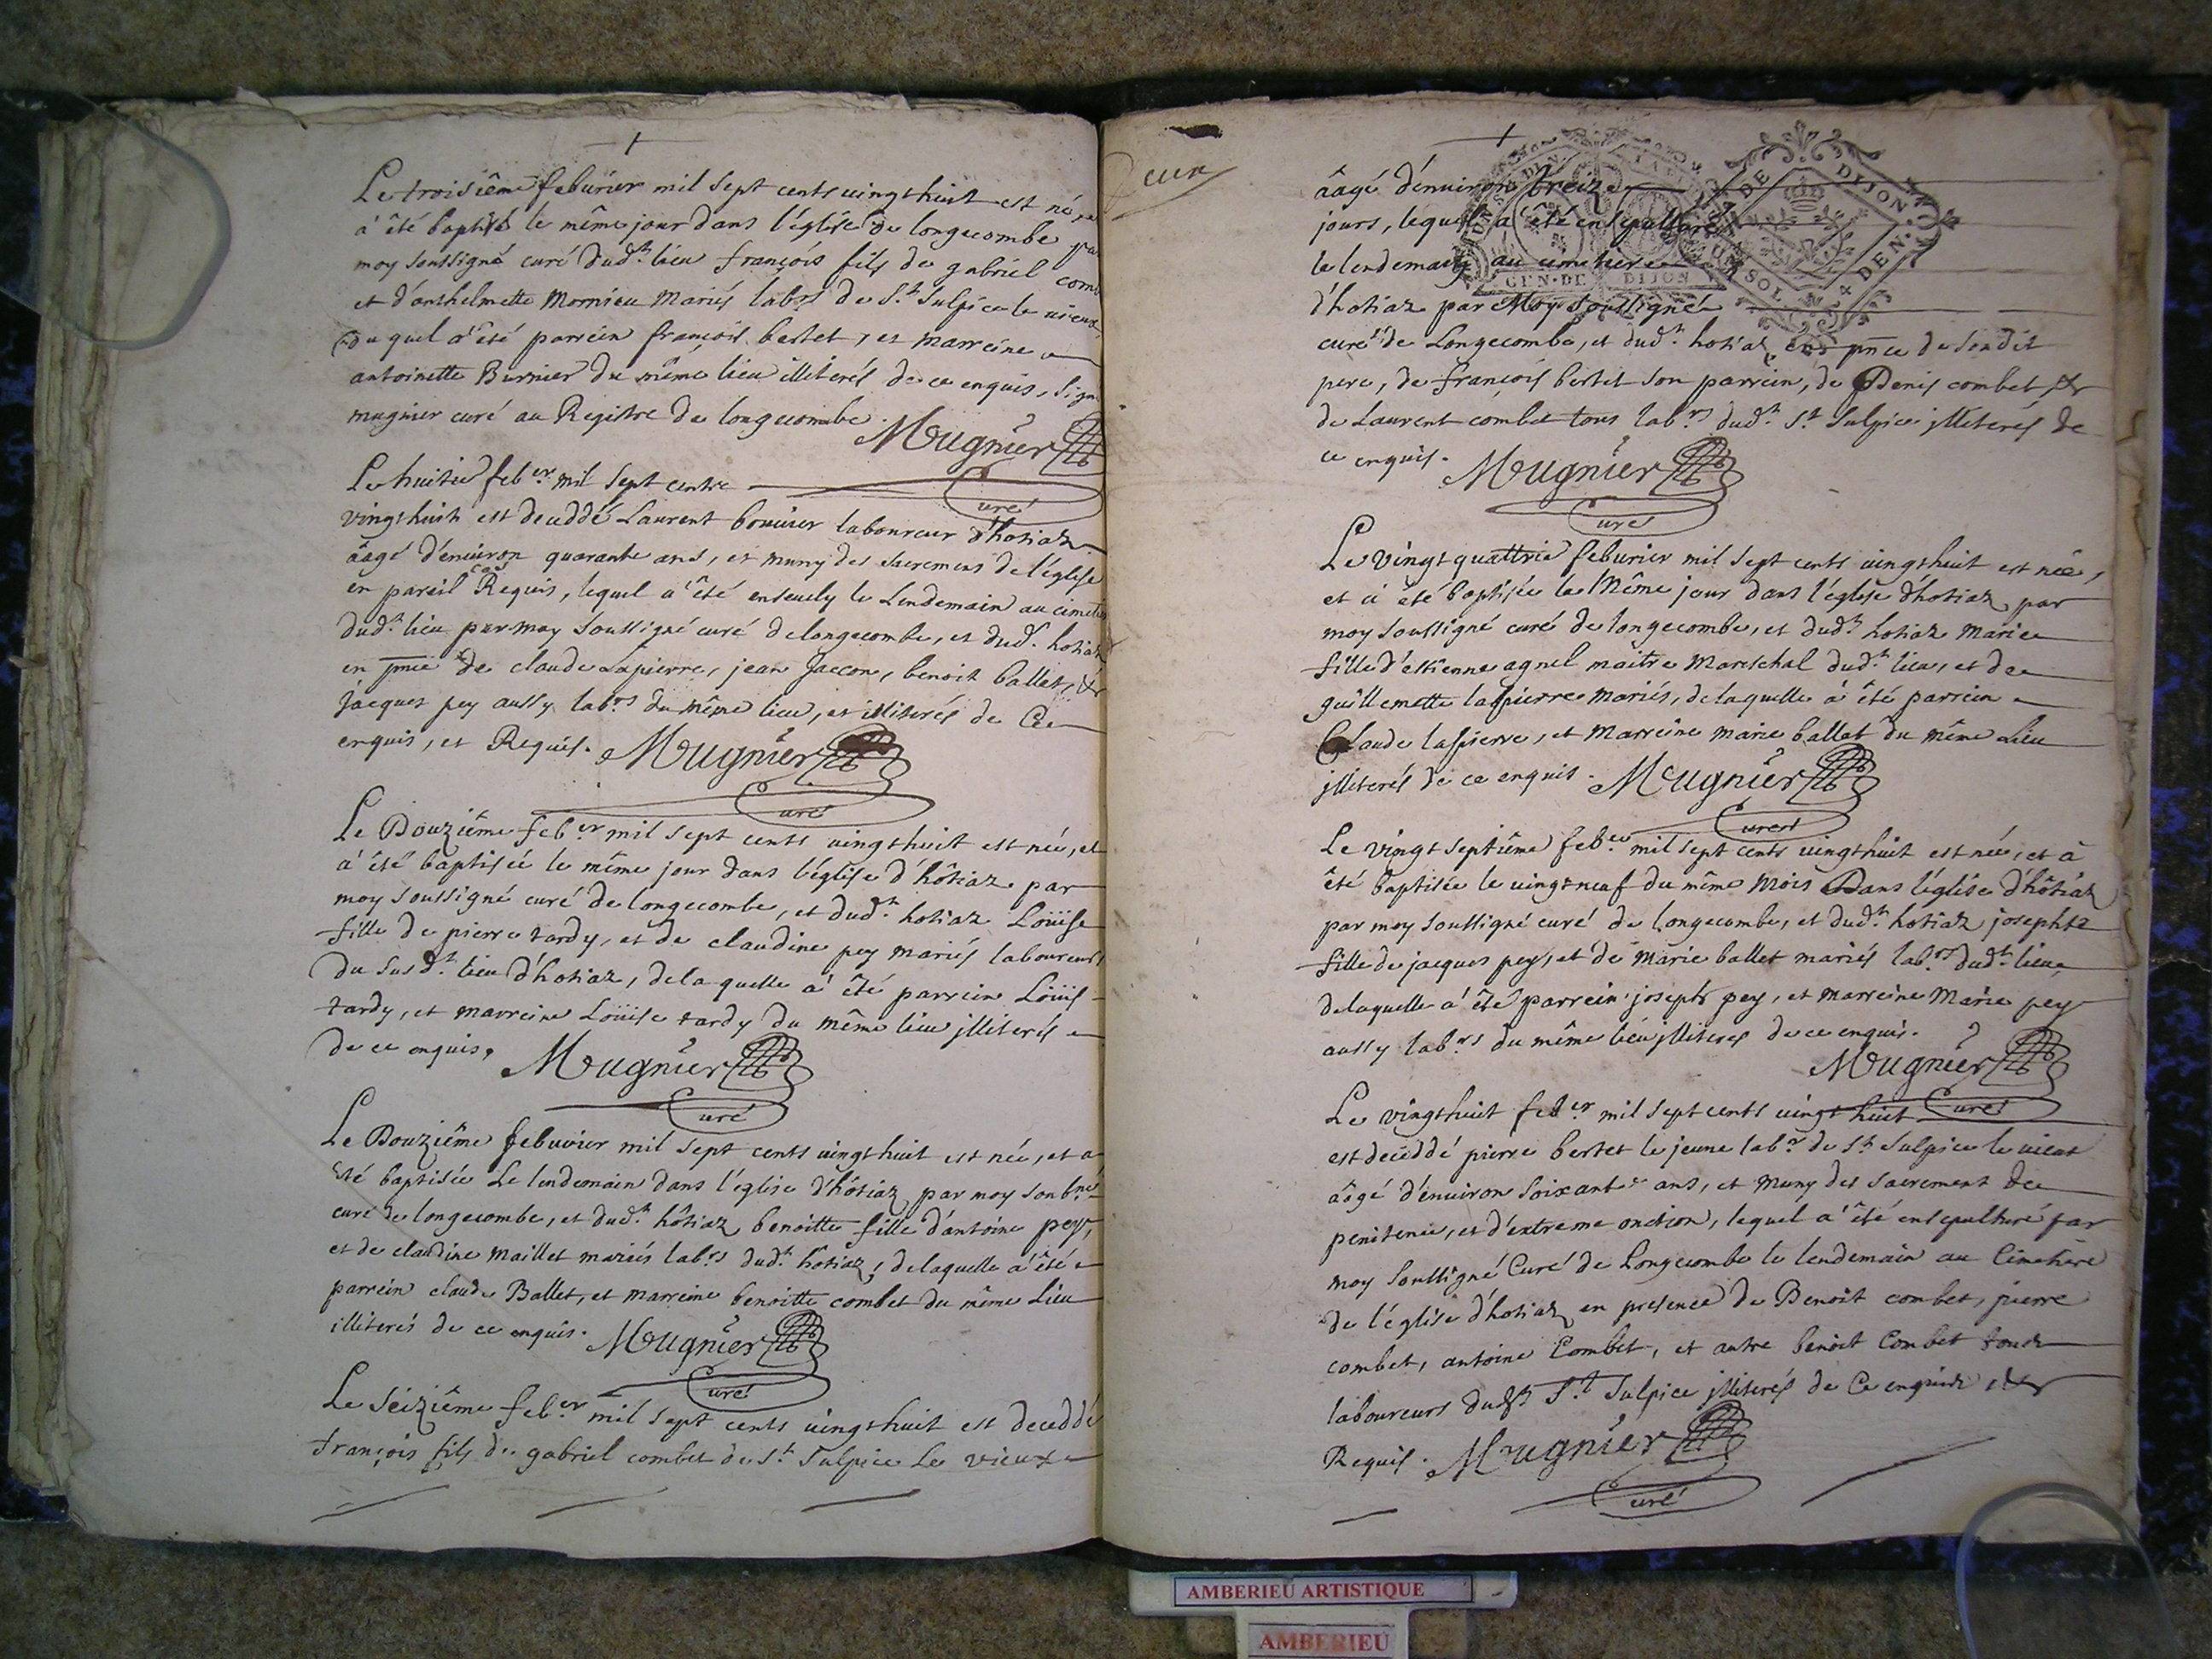 Le troisiême feburier mil sept cents vingt huit est né, et
à été baptisé le même jour dans l'église de longecombe par
moy soussigné curé dud.t lieu françois fils de gabriel comb
et d'anthelmette Mornieu Mariés lab.rs de S.t Sulpice le vieux
du quel a été parrein françois bertet, et marreine
antoinette Burnier du même lieu illiterés de ce enquis, signé
mugnier curé au Registre de longecombe.
Mugnier
Curé
Le huitie feb.er mil sept cents
vingt huit est deceddé Laurent bouvier laboureur d'hotiaz
âagé d'enuiron quarante ans, et muny des sacremens de l'église
en pareil cas Requis, lequel a été enseuely le Lendemain au cimetiere
dud.t lieu par moy soussigné curé de longecombe, et dud.t hotiaz
en pnce de claude Lapierre, jean Jaccon, benoit ballet, &
jacques pey aussy lab.rs du même lieu, et illiterés de Ce
enquis, et Requis. Mugnier
Curé
Le Douziême feb.er mil sept cents vingt huit est née, et
a' été baptisée le même jour dans l'église d'hôtiaz par
moy soussigné curé de longecombe, et dud.t hotiaz Loüise
fille de pierre tardy, et de claudine pey mariés laboureurs
du susd.t lieu d'hotiaz, de la quelle a' été parrein Loüis
tardy, et marreine Loüise tardy du même lieu illiterés
de ce enquis, Mugnier
Curé
Le Douziême feburier mil sept cents vingt huit est née, et a
été baptisée Le lendemain dans l'église d'hôtiaz par moy soub.né
curé de longecombe, et dud.t hôtiaz benoitte fille d'antoine pey,
et de claudine maillet mariés lab.rs dud.t hotiaz, de laquelle a' été
parrein claude Ballet, et marreine benoitte combet du même Lieu
illiterés de ce enquis. Mugnier
Curé
Le Seiziême feb.er mil sept cents vingt huit est deceddé
françois fils de gabriel combet de S.t Sulpice Le vieux
âagé d'enuiron treize
jours, lequel a été ensepulturé
le lendemain au cimetiere
d'hotiaz par Moy soussigné
curé de Longecombe, et dud.t hotiaz en pnce de sondit
pere, de françois bertet son parrein, de Denis combet &
de Laurent combet tous lab.rs dud.t S.t Sulpice illiterés de
ce enquis. Mugnier
Curé
Le vingt quattrie feburier mil sept cents vingt huit est née,
et a été baptisée le Même jour dans l'église d'hotiaz par
moy soussigné curé de longecombe, et dud.t hotiaz Marie
fille d'estienne agnel maître Mareschal dud.t lieu, et de
guillemette lapierre mariés, de laquelle a' été parrein
Claude lapierre, et Marreine marie ballet du même Lieu
illiterés de ce enquis. Mugnier
Curé
Le vingt septiême feb.er mil sept cents vingt huit est née, et à
été baptisée le vingt neuf du même Mois Dans l'église d'hôtiaz
par moy soussigné curé de longecombe, et dud.t hotiaz josephte
fille de jacques pey, et de Marie ballet mariés lab.rs dud.t lieu,
de laquelle a' été parrein joseph pey, et marreine Marie pey
aussy lab.rs du même lieu illiterés de ce enquis.
Mugnier
Curé
Le vingt huit feb.er mil sept cents vingt huit
est deceddé pierre bertet le jeune lab.r de S.t Sulpice le vieux
âagé d'enuiron soixante ans, et muny des sacrement de
penitence, et d'extreme onction, lequel a' été ensepulturé par
moy soussigné Curé de Longecombe le lendemain au Cimetiere
de l'église d'hotiaz en presence de Benoit combet, pierre
combet, antoine Combet, et autre benoit Combet tous
laboureurs dud.t S.t Sulpice illiterés de Ce enquis &
Requis. Mugnier
Curé
GEN. DE DIJON
DE DIJON
SOL
DEN.
AMBERIEU ARTISTIQUE
AMBERIEU